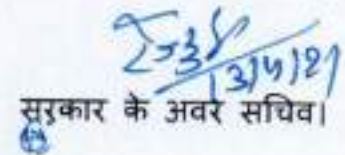 13/5/21
सरकार के अवर सचिव।